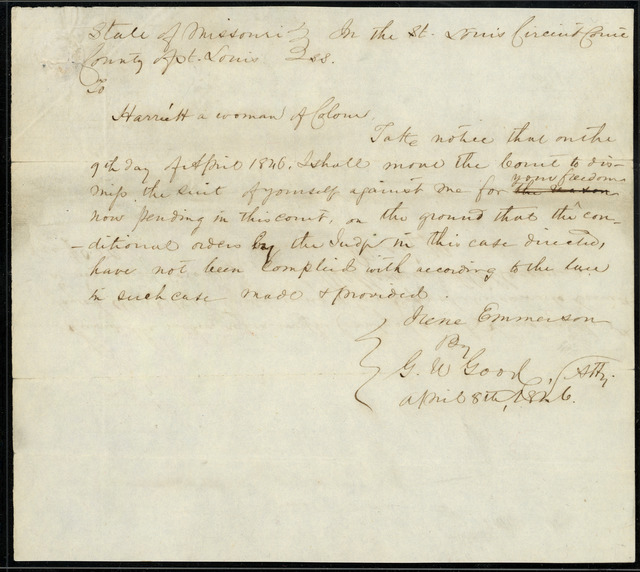 State of Missouri } In the St. Louis Circuit Court
County of St. Louis } ss.
To
Harriett a woman of Colour
Take notice that on the
9th day of April 1846. I shall move the Court to dis-
miss the suit of yourself against me for your freedom
now pending in this court, on the ground that the con-
-ditional orders by the Judge in this case directed,
have not been complied with according to the law
in such case made & provided.
Irene Emmerson
By
G. W Good, Atty.
April 8th, 1846.